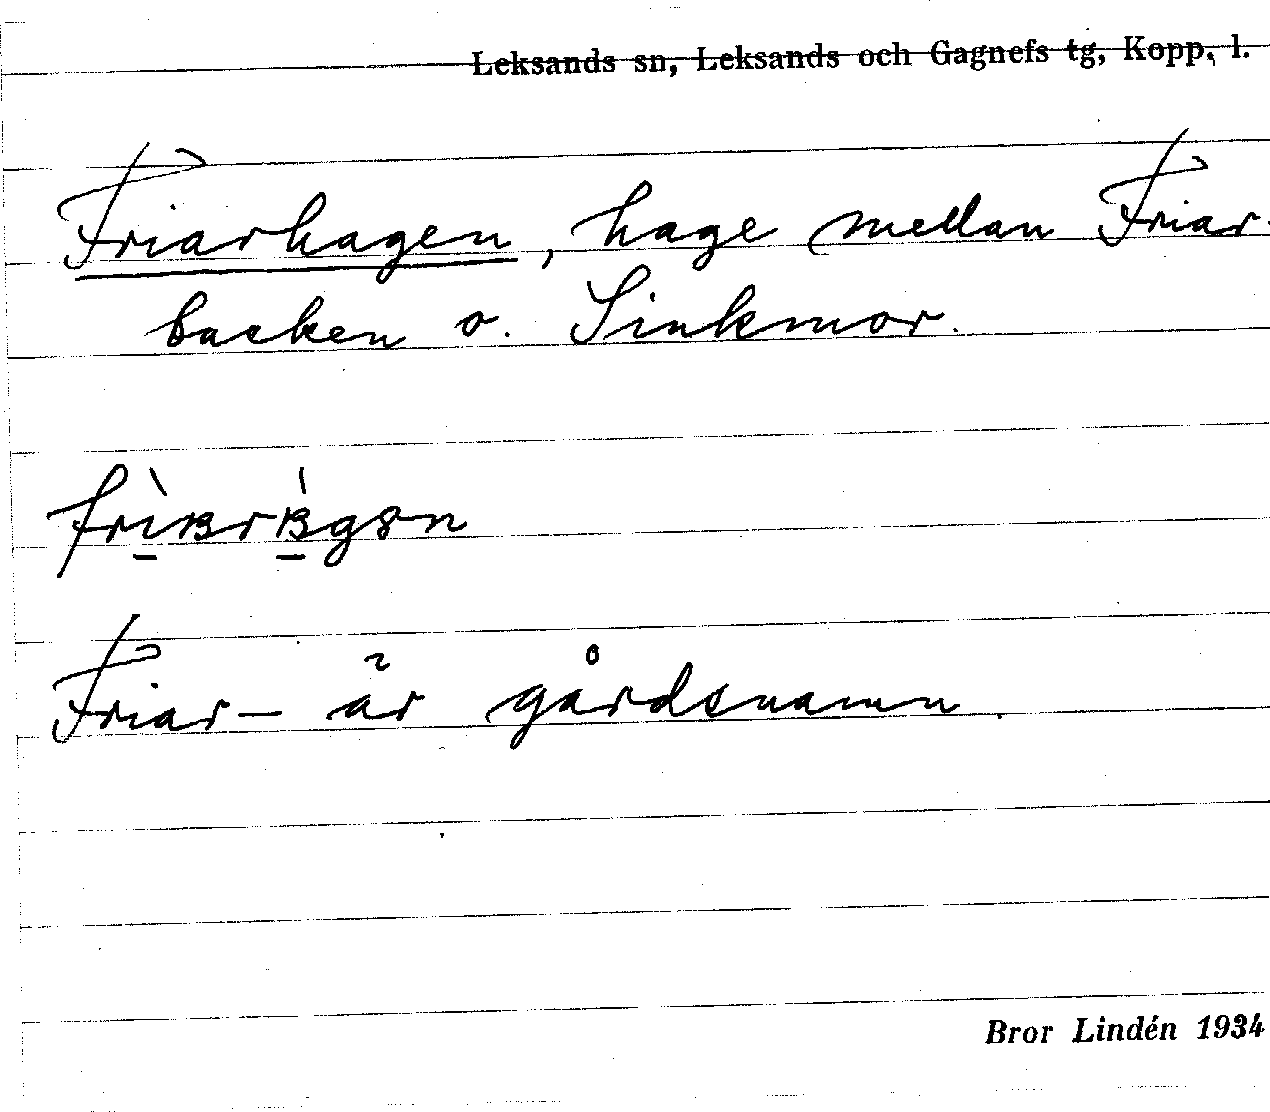 Leksands sn, Leksands och Gagnefs tg, Kopp. l.
Friarhagen, hage mellan Friar-
backen o. Sinkmor.
Friar- är gårdsnamn.
Bror Lindén 1934